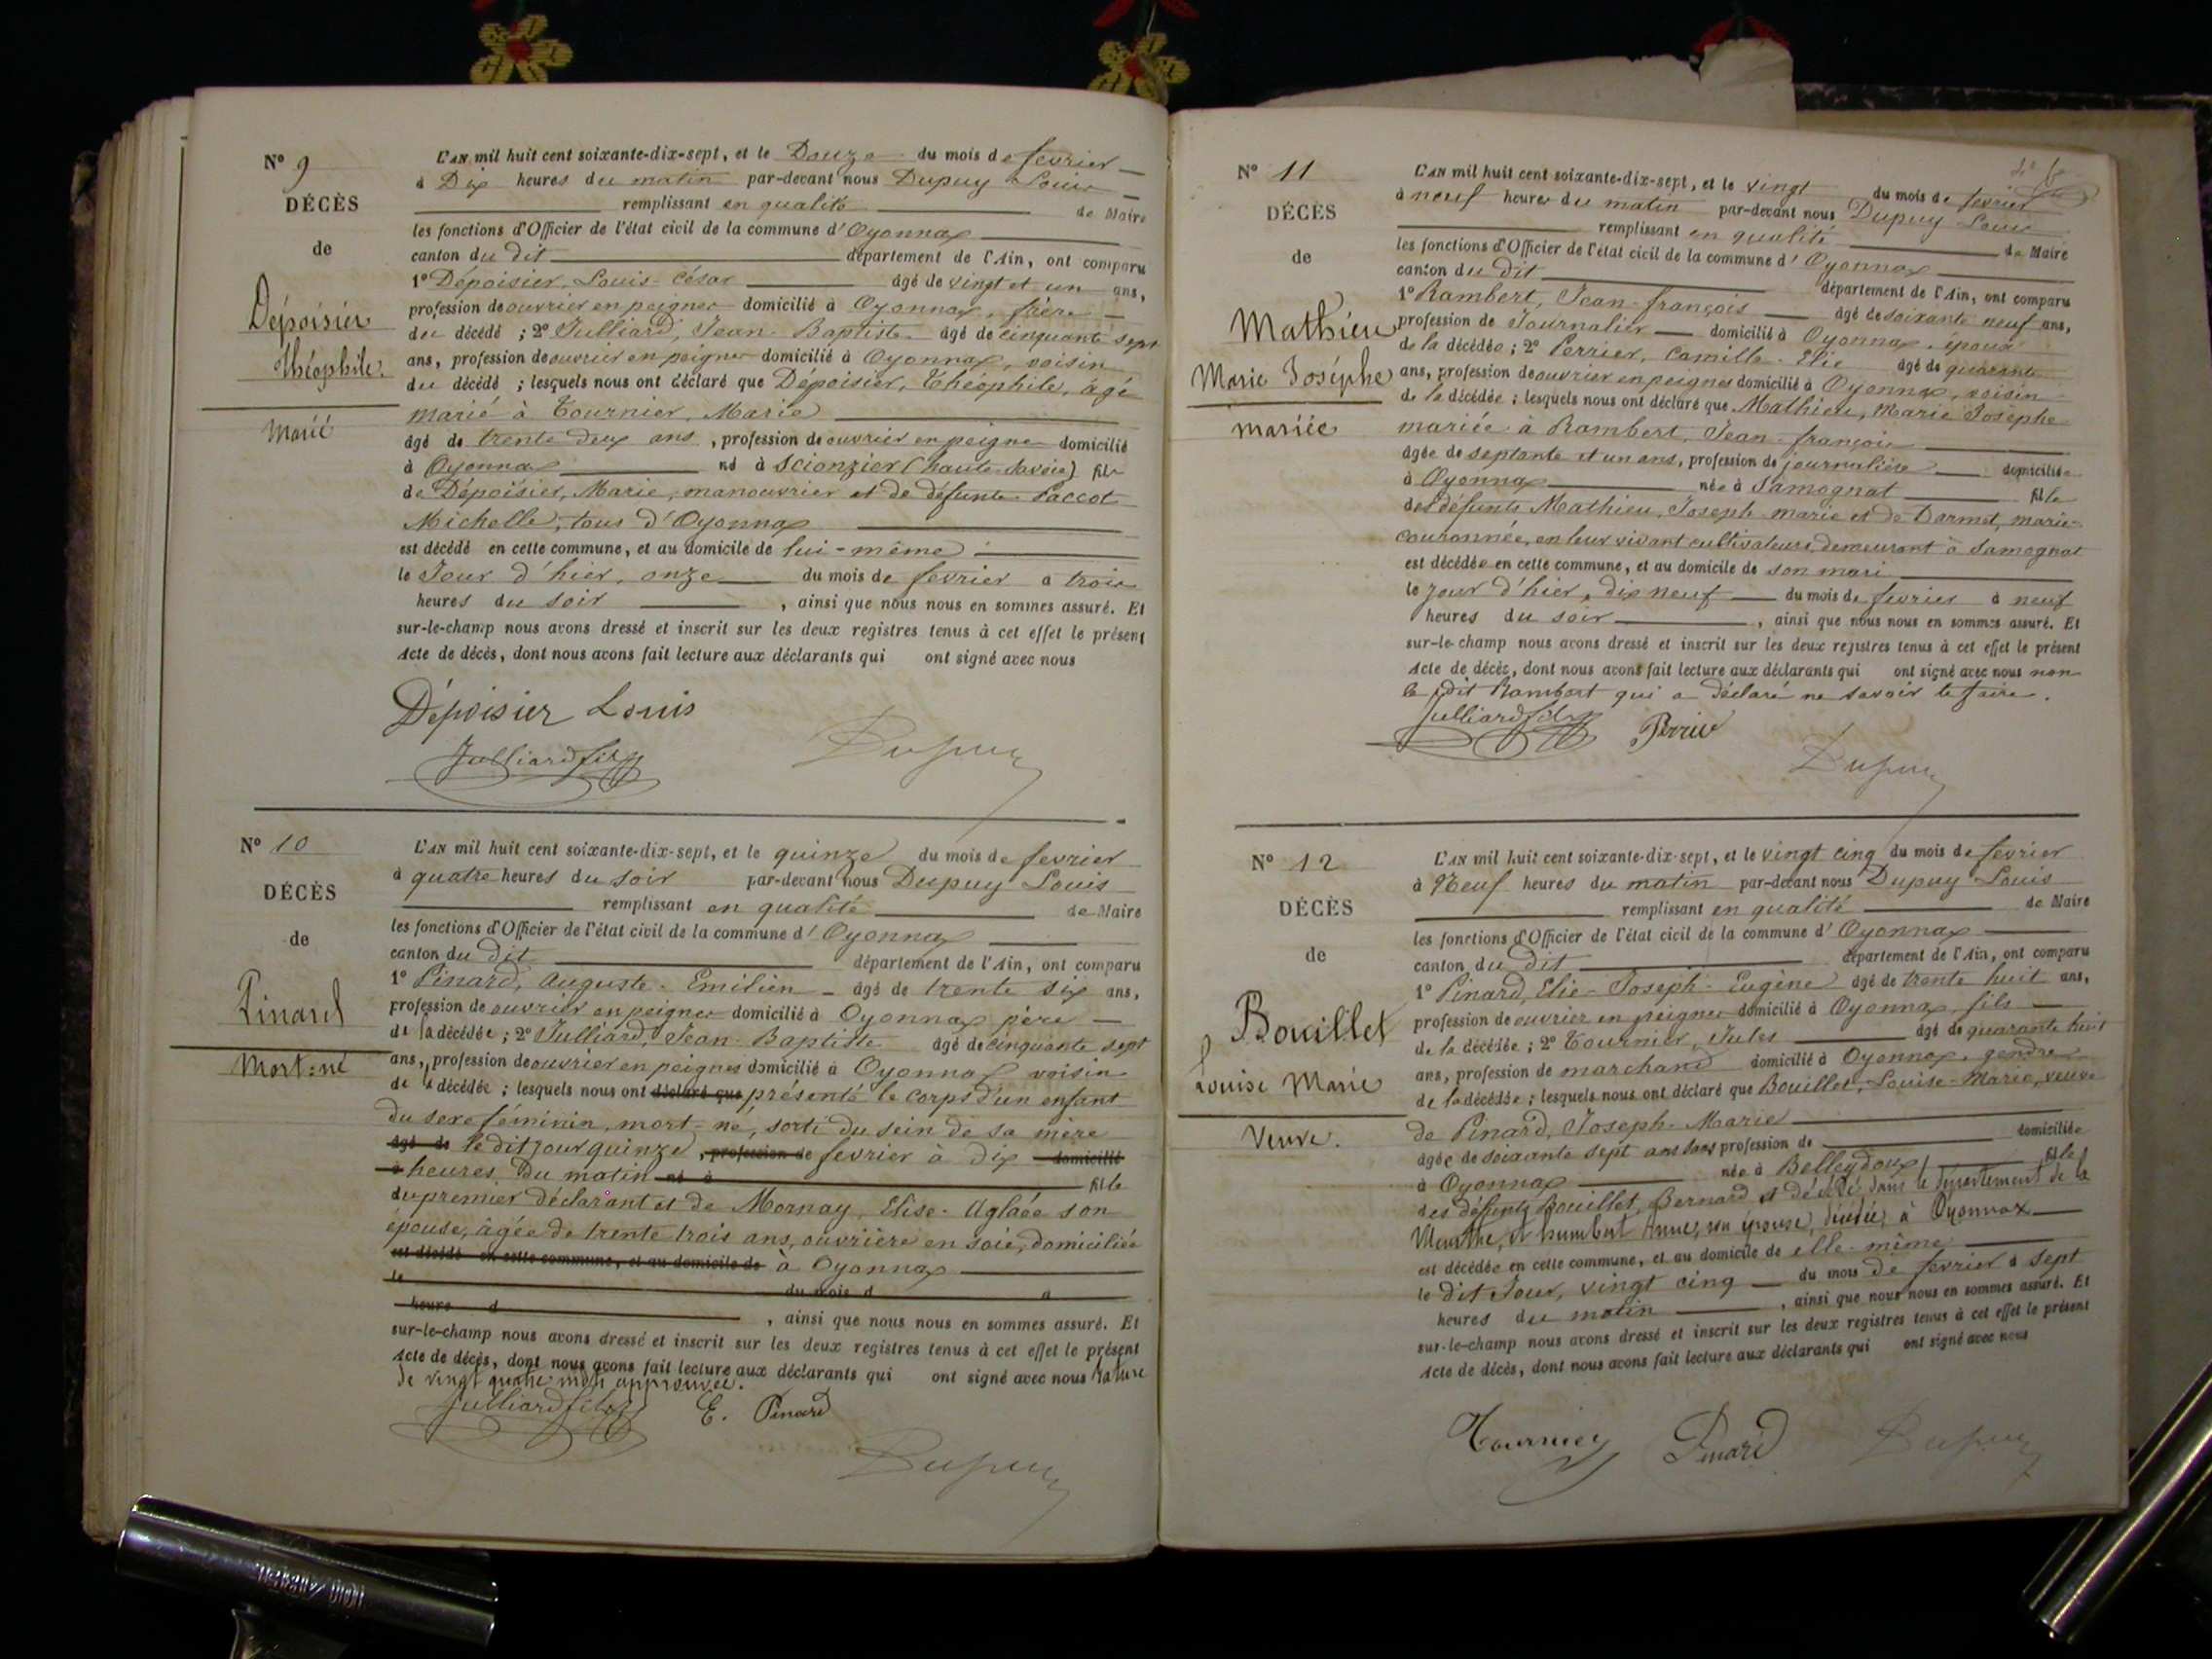 N° 9
DÉCÈS
de
Dépoisier
Théophile.
Marié
L'AN mil huit cent soixante-dix-sept, et le Douze du mois de fevrier
à Dix heures du matin par-devant nous Dupuy Louis
remplissant en qualité de Maire
les fonctions d'Officier de l'état civil de la commune d'Oyonnax
canton du dit département de l'Ain, ont comparu
1° Dépoisier, Louis-César âgé de vingt et un ans,
profession de ouvrier en peignes domicilié à Oyonnax, frère
du décédé ; 2° Julliard, Jean-Baptiste âgé de cinquante sept
ans, profession de ouvrier en peignes domicilié à Oyonnax, voisin
du décédé ; lesquels nous ont déclaré que Dépoisier, Théophile, âgé
marié à Tournier, Marie
âgé de trente deux ans, profession de ouvrier en peignes domicilié
à Oyonnax né à Scionzier (haute-Savoie) fils
de Dépoisier, Marie, manouvrier et de défunte Paccot
Michelle, tous d'Oyonnax
est décédé en cette commune, et au domicile de lui-même
le Jour d'hier, onze du mois de fevrier à trois
heures du soir , ainsi que nous nous en sommes assuré. Et
sur-le-champ nous avons dressé et inscrit sur les deux registres tenus à cet effet le présent
Acte de décès, dont nous avons fait lecture aux déclarants qui ont signé avec nous
Dépoisier Louis
Julliard fils Dupuy
N° 10
DÉCÈS
de
Pinard
Mort-né
L'AN mil huit cent soixante-dix-sept, et le quinze du mois de fevrier
à quatre heures du soir par-devant nous Dupuy Louis
remplissant en qualité de Maire
les fonctions d'Officier de l'état civil de la commune d'Oyonnax
canton du dit département de l'Ain, ont comparu
1° Pinard, Auguste-Emilien âgé de trente six ans,
profession de ouvrier en peignes domicilié à Oyonnax père
de la décédée ; 2° Julliard, Jean-Baptiste âgé de cinquante sept
ans, profession de ouvrier en peignes domicilié à Oyonnax voisin
de la décédée ; lesquels nous ont déclaré que présenté le corps d'un enfant
du sexe féminin, mort-né, sorti du sein de sa mère
âgé de le dit jour quinze, profession de fevrier à dix domicilié
à heures du matin né à fille
du premier déclarant et de Mornay, Elise-Aglaée son
épouse, âgée de trente trois ans, ouvrière en soie, domiciliée
est décédé en cette commune, et au domicile de à Oyonnax
le du mois d à
heure d , ainsi que nous nous en sommes assuré. Et
sur-le-champ nous avons dressé et inscrit sur les deux registres tenus à cet effet le présent
Acte de décès, dont nous avons fait lecture aux déclarants qui ont signé avec nous Rature
de vingt quatre mots approuvée.
Julliard fils E. Pinard
Dupuy
N° 11
DÉCÈS
de
Mathieu
Marie Joséphe
mariée
L'AN mil huit cent soixante-dix-sept, et le vingt du mois de fevrier
à neuf heures du matin par-devant nous Dupuy Louis
remplissant en qualité de Maire
les fonctions d'Officier de l'état civil de la commune d'Oyonnax
canton du dit département de l'Ain, ont comparu
1° Rambert, Jean-françois âgé de soixante neuf ans,
profession de Journalier domicilié à Oyonnax, époux
de la décédée ; 2° Perrier, Camille-Elie âgé de quarante
ans, profession de ouvrier en peignes domicilié à Oyonnax, voisin
de la décédée ; lesquels nous ont déclaré que Mathieu, Marie Josephe
mariée à Rambert, Jean-françois
âgée de septante et un ans, profession de journalière domiciliée
à Oyonnax née à Samognat fille
des défunts Mathieu, Joseph-marie et de Darmet, marie-
couronnée, en leur vivant cultivateurs, demeurant à Samognat
est décédée en cette commune, et au domicile de son mari
le jour d'hier, dix neuf du mois de fevrier à neuf
heures du soir , ainsi que nous nous en sommes assuré. Et
sur-le-champ nous avons dressé et inscrit sur les deux registres tenus à cet effet le présent
Acte de décès, dont nous avons fait lecture aux déclarants qui ont signé avec nous non
le dit Rambert qui a déclaré ne savoir le faire.
Julliard fils Perrier
Dupuy
N° 12
DÉCÈS
de
Bouillet
Louise Marie
Veuve.
L'AN mil huit cent soixante-dix-sept, et le vingt cinq du mois de fevrier
à Neuf heures du matin par-devant nous Dupuy Louis
remplissant en qualité de Maire
les fonctions d'Officier de l'état civil de la commune d'Oyonnax
canton du dit département de l'Ain, ont comparu
1° Pinard, Elie-Joseph-Eugène âgé de trente huit ans,
profession de ouvrier en peignes domicilié à Oyonnax, fils
de la décédée ; 2° Tournier, Jules âgé de quarante huit
ans, profession de marchand domicilié à Oyonnax, gendre
de la décédée ; lesquels nous ont déclaré que Bouillet, Louise-Marie, veuve
de Pinard, Joseph-Marie
âgée de soixante sept ans sans profession de domiciliée
à Oyonnax née à Belleydoux fille
des défunts Bouillet, Bernard, et décédé dans le département de la
Meurthe, et humbert Anne, son épouse, décédée à Oyonnax
est décédée en cette commune, et au domicile de elle-même
le dit Jour, vingt cinq du mois de fevrier à sept
heures du matin , ainsi que nous nous en sommes assuré. Et
sur-le-champ nous avons dressé et inscrit sur les deux registres tenus à cet effet le présent
Acte de décès, dont nous avons fait lecture aux déclarants qui ont signé avec nous
Tournier Pinard Dupuy